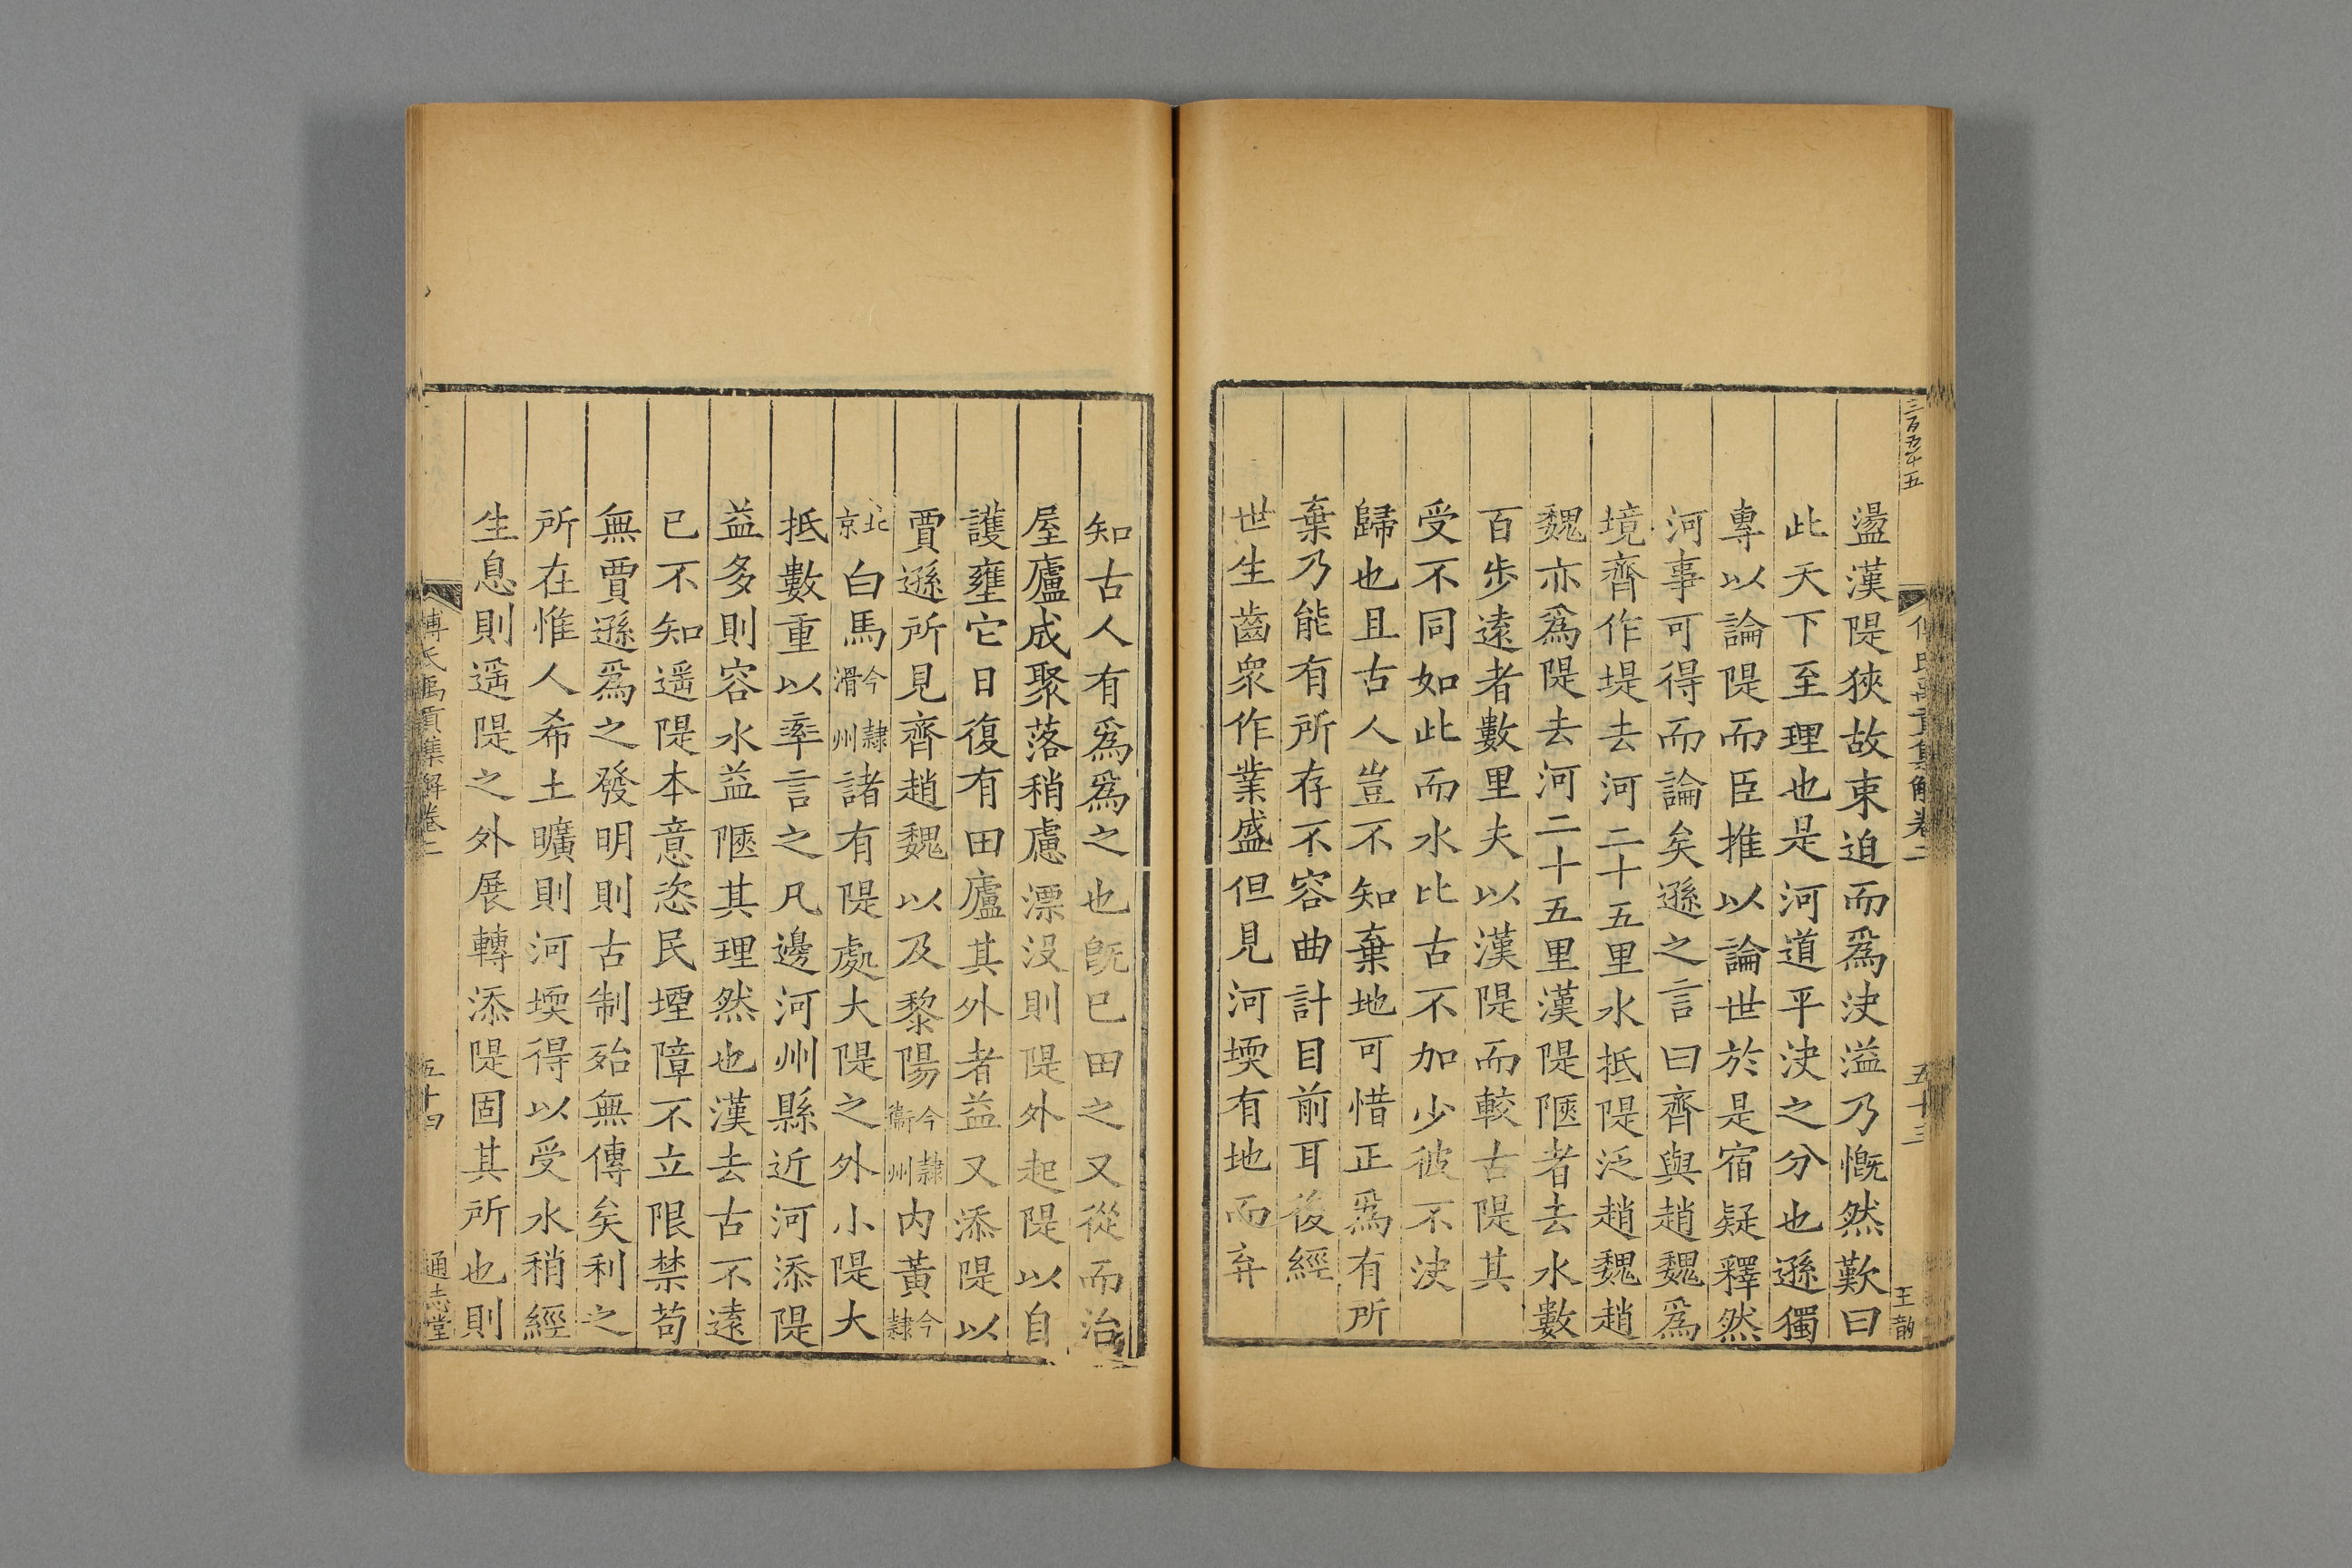 三百五十五
傅氏禹貢集解卷二
五十三
王莭
盪漢隄狹故束迫而爲决溢乃慨然歎曰
此天下至理也是河道平决之分也遜獨
專以論隄而臣推以論世於是宿疑釋然
河事可得而論矣遜之言曰齊與趙魏爲
境齊作堤去河二十五里水抵隄泛趙魏趙
魏亦爲隄去河二十五里漢隄陿者去水數
百步遠者數里夫以漢隄而較古隄其
受不同如此而水比古不加少彼不决
歸也且古人豈不知棄地可惜正爲有所
棄乃能有所存不容曲計目前耳後經
世生齒衆作業盛但見河堧有地而弃
知古人有爲爲之也旣已田之又從而治
屋廬成聚落稍慮漂没則隄外起隄以自
護壅它日復有田廬其外者益又添隄以
賈遜所見齊趙魏以及黎陽今隸衞州内黃今隸
北京白馬今隸滑州諸有隄處大隄之外小隄大
抵數重以率言之凡邊河州縣近河添隄
益多則容水益陿其理然也漢去古不遠
已不知遥隄本意恣民堙障不立限禁苟
無賈遜爲之發明則古制殆無傳矣利之
所在惟人希土曠則河堧得以受水稍經
生息則遥隄之外展轉添隄固其所也則
傅氏禹貢集解卷二
五十四
通志堂